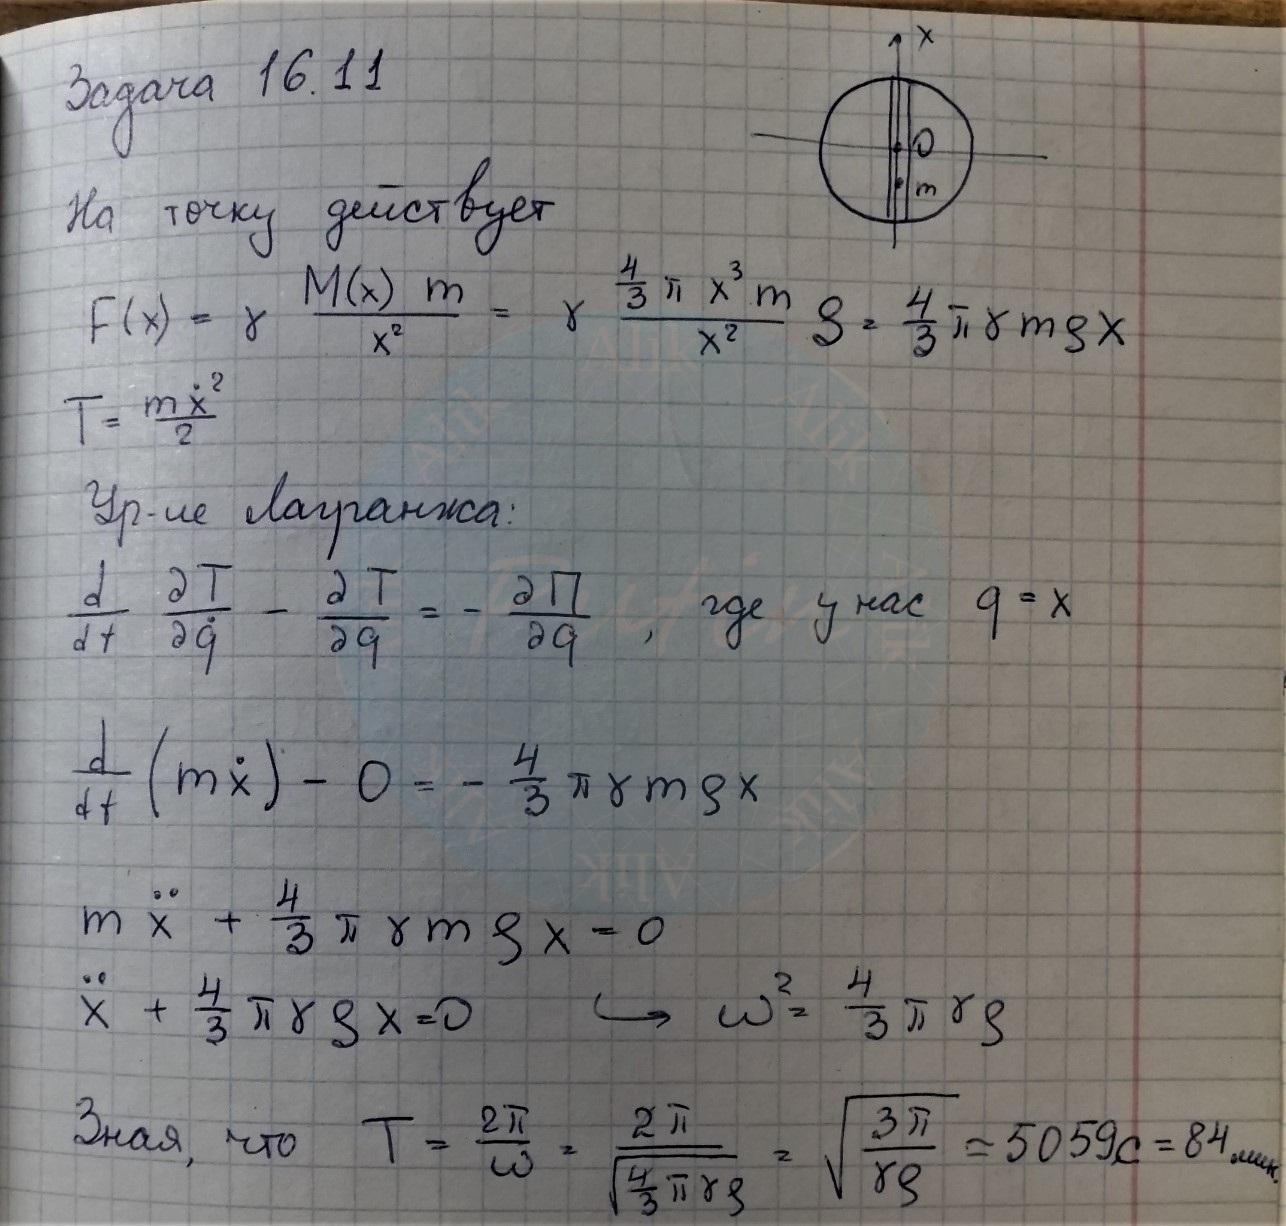 Задача 16.11
x
O
m
На точку действует
F(x) = γ M(x) m / x² = γ 4/3 π x³ m / x² ρ = 4/3 π γ m ρ x
T = mẋ² / 2
Ур-ие Лагранжа:
d/dt ∂T/∂q̇ - ∂T/∂q = - ∂П/∂q , где у нас q = x
d/dt (mẋ) - 0 = - 4/3 π γ m ρ x
m ẍ + 4/3 π γ m ρ x = 0
ẍ + 4/3 π γ ρ x = 0 ↪ ω² = 4/3 π γ ρ
Зная, что T = 2π/ω = 2π / √(4/3 π γ ρ) = √(3π / γρ) = 5059с = 84 мин.